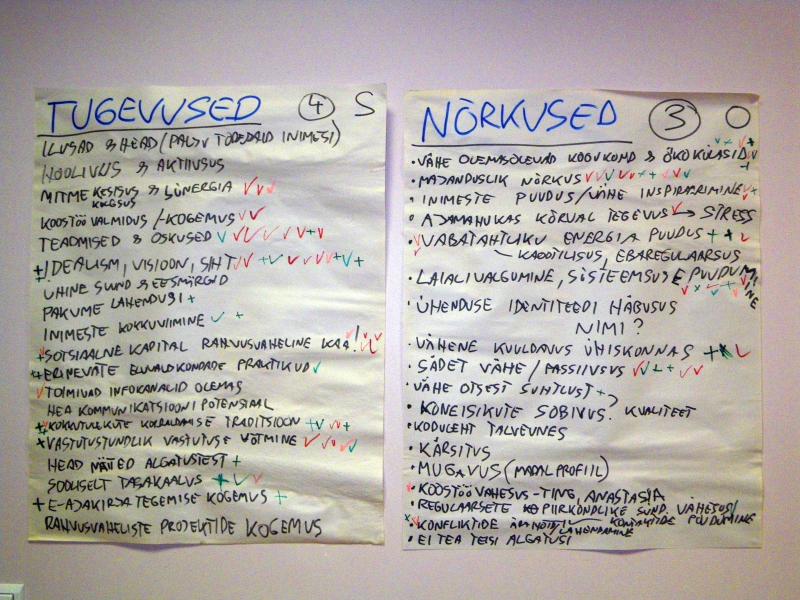 TUGEVUSED 4 S
ILUSAD & HEAD (PALJU TOREDAID INIMESI)
HOOLIVUS & AKTIIVSUS
MITMEKESISUS & SÜNERGIA
KOGSUS
KOOSTÖÖ VALMIDUS /-KOGEMUS
TEADMISED & OSKUSED
IDEALISM, VISIOON, SIHT
ÜHINE SUUND & EESMÄRGID
PAKUME LAHENDUSI
INIMESTE KOKKUVIIMINE
SOTSIAALNE KAPITAL RAHVUSVAHELINE KA!
ERINEVATE ELUVALDKONDADE PRAKTIKUD
TOIMIVAD INFOKANALID OLEMAS
HEA KOMMUNIKATSIOONI POTENSIAAL
KOKKUTULEKUTE KORRALDAMISE TRADITSIOON
VASTUTUSTUNDLIK VASTUTUSE VÕTMINE
HEAD NÄITED ALGATUSTEST
SOOLISELT TASAKAALUS
E-AJAKIRJA TEGEMISE KOGEMUS
RAHVUSVAHELISTE PROJEKTIDE KOGEMUS
NÕRKUSED 3 O
• VÄHE OLEMASOLEVAID KOGUKOND & ÖKOKÜLASID
• MAJANDUSLIK NÕRKUS
• INIMESTE PUUDUS/VÄHE INSPIRARIMINE
• AJAMAHUKAS KÕRVAL TEGEVUS → STRESS
• VABATAHTLIKU ENERGIA PUUDUS
– KAOOTILISUS, EBAREGULAARSUS
• LAIALIVALGUMINE, SÜSTEEMSUSE PUUDUMINE
• ÜHENDUSE IDENTITEEDI HÄBUSUS
NIMI?
• VÄHENE KUULDAVUS ÜHISKONNAS
• SÄDET VÄHE / PASSIIVSUS
• VÄHE OTSEST SUHTLUST
• KONEISIKUTE SOBIVUS? KVALITEET
• KODULEHT TALVEUNES
• KÄRSITUS
• MUGAVUS (MADAL PROFIIL)
• KOOSTÖÖ VÄHESUS - TING, ANASTASIA
• REGULAARSETE PIIRKONDLIKE SÜND. VÄHESUS/
KONTAKTIDE PUUDUMINE
• KONFLIKTIDE LAHENDAMINE
• EI TEA TEISI ALGATUSI